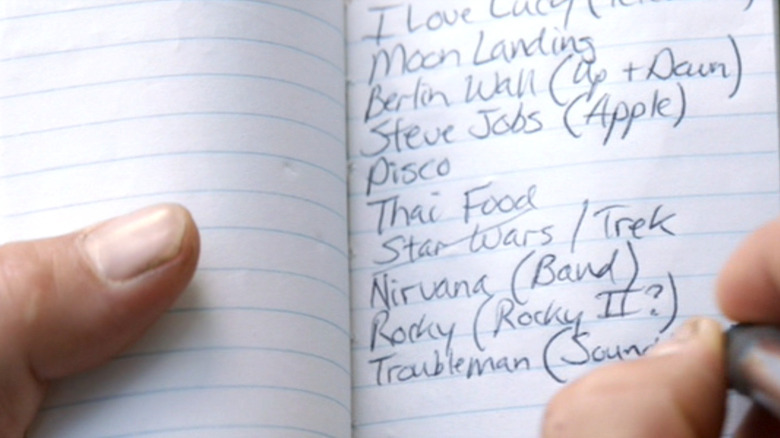 I Love Lucy
Moon Landing
Berlin Wall (Up + Down)
Steve Jobs (Apple)
Disco
Thai Food
Star Wars / Trek
Nirvana (Band)
Rocky (Rocky II?)
Troubleman (Soun